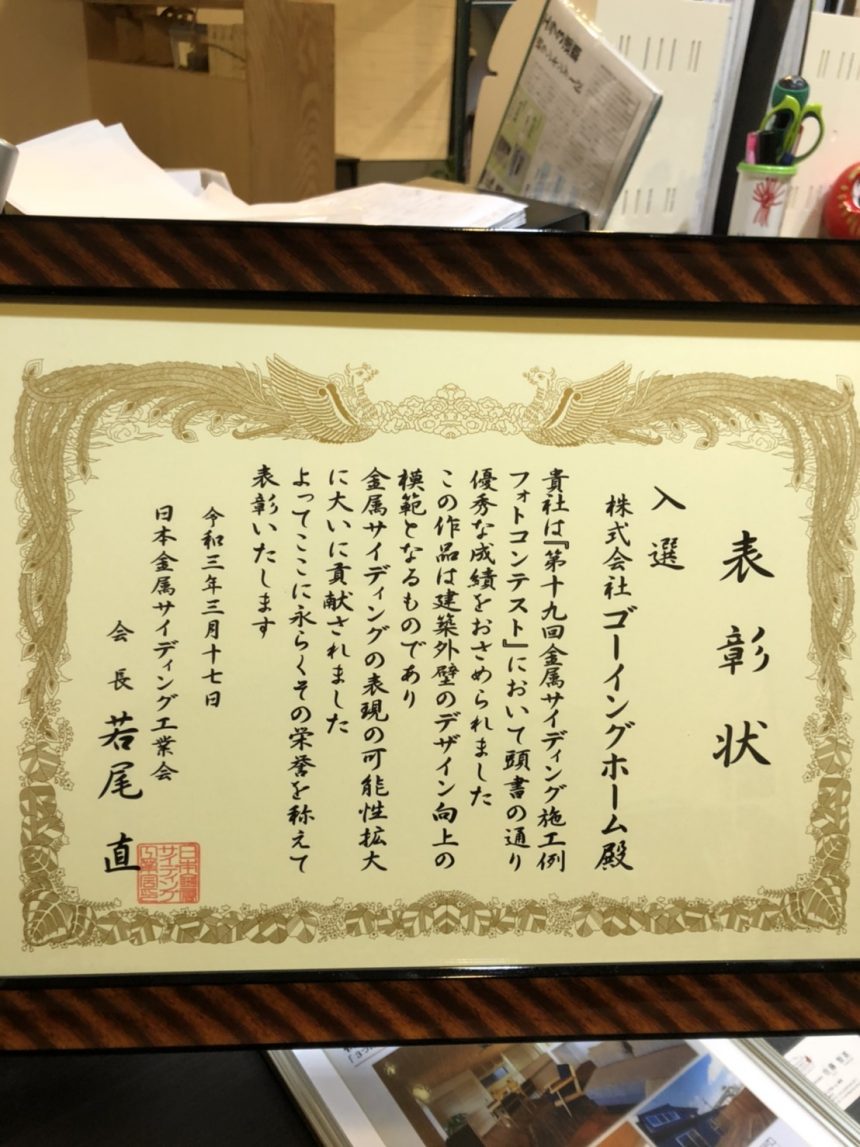 表彰状
入選
株式会社ゴーイングホーム殿
貴社は『第十九回金属サイディング施工例
フォトコンテスト』において頭書の通り
優秀な成績をおさめられました
この作品は建築外壁のデザイン向上の
模範となるものであり
金属サイディングの表現の可能性拡大
に大いに貢献されました
よってここに永らくその栄誉を称えて
表彰いたします
令和三年三月十七日
日本金属サイディング工業会
会長 若尾 直